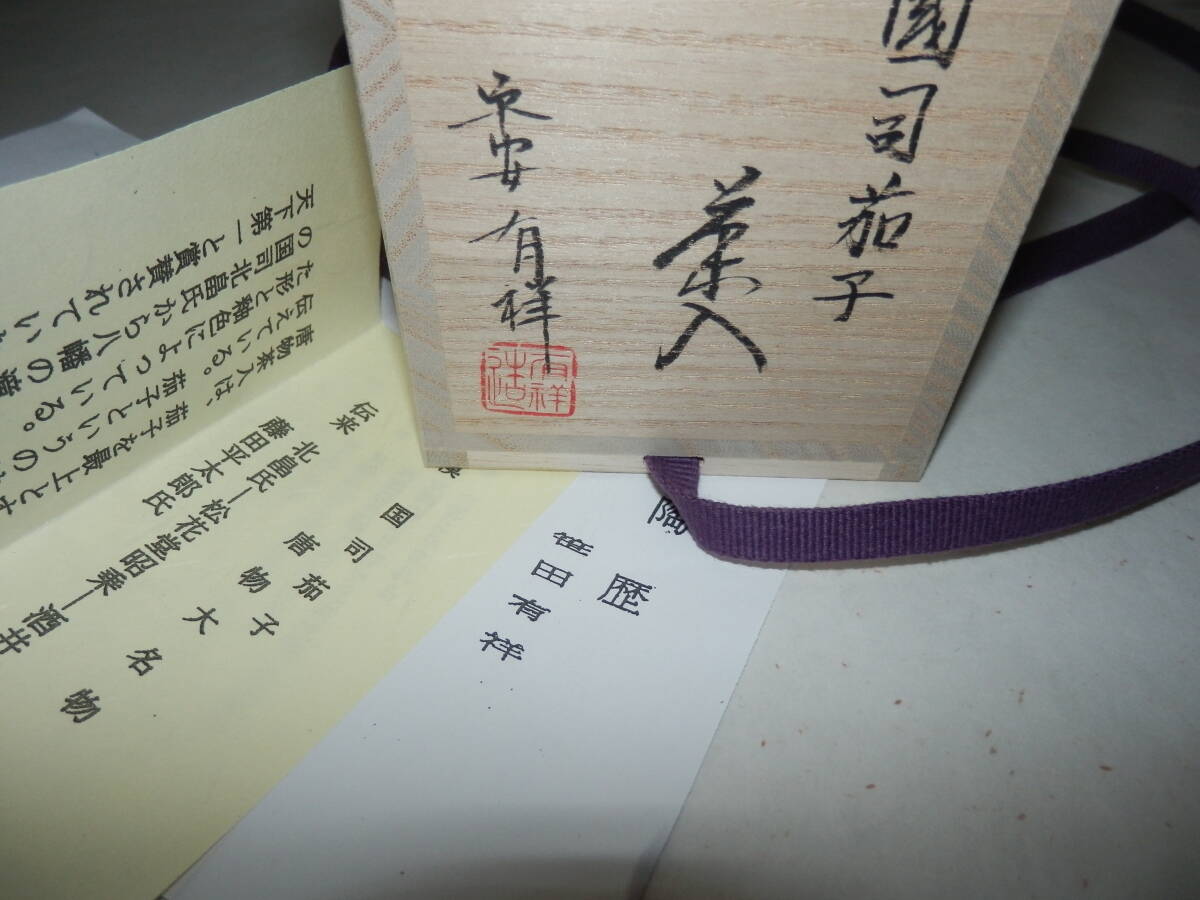 國司茄子
茶入
平安 有祥
有祥
造
陶
歴
笹田有祥
国司茄子
唐物 大名物
伝来
北畠氏―松花堂昭乗―酒井
藤田平太郎氏
唐物茶入は、茄子を最上とす
伝えている。茄子というの
た形と釉色によっている。
の国司北畠氏から八幡の瀧
天下第一と賞賛されてい